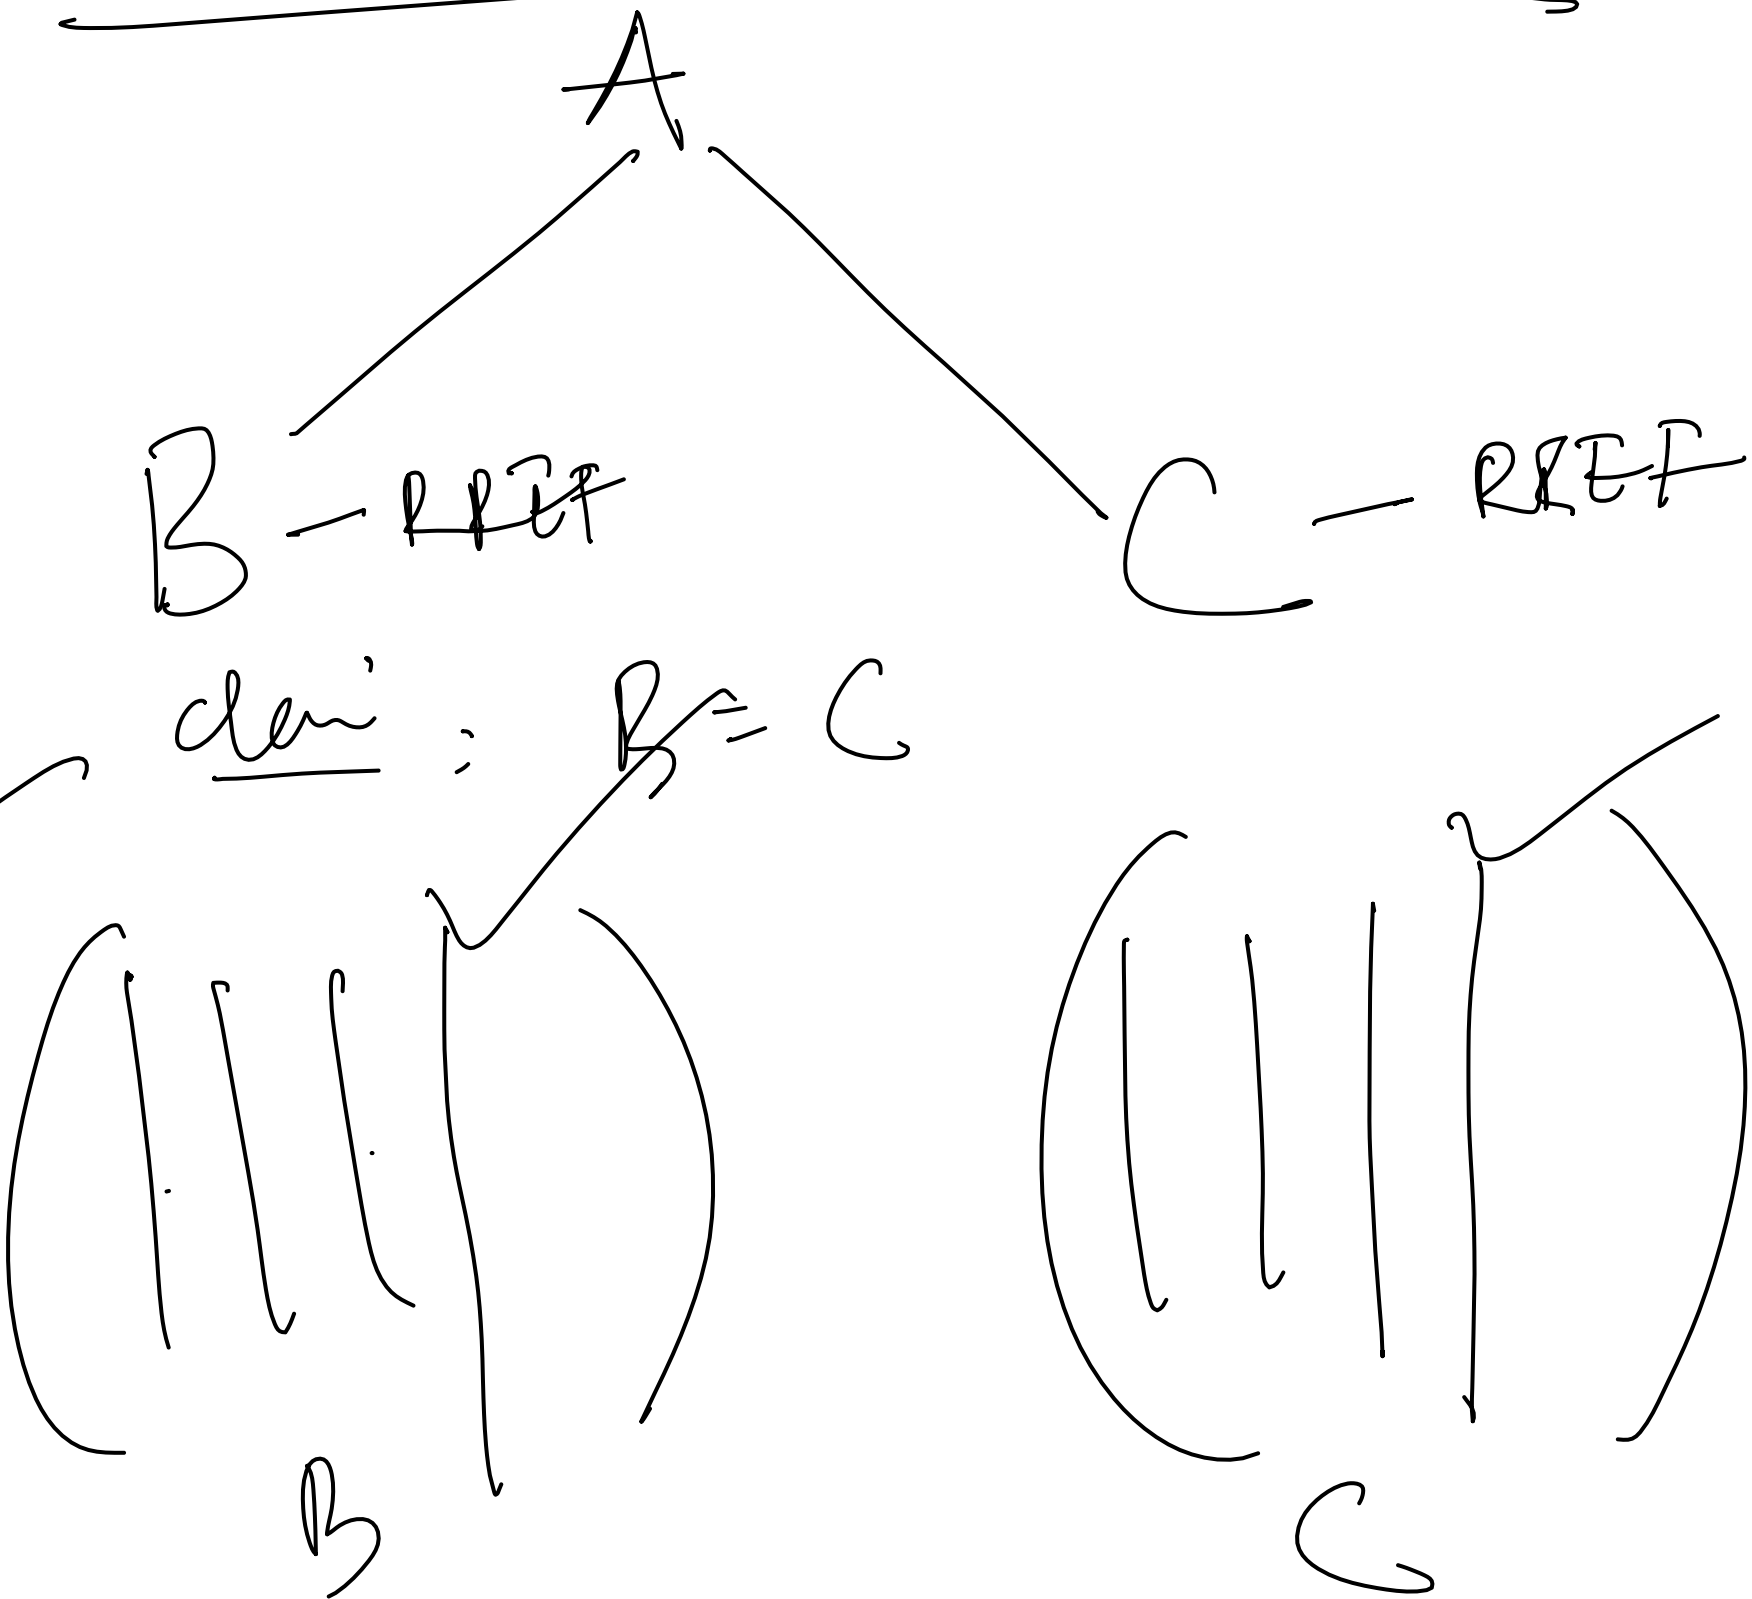 A
B - RREF
C - RREF
claim : B = C
B
C